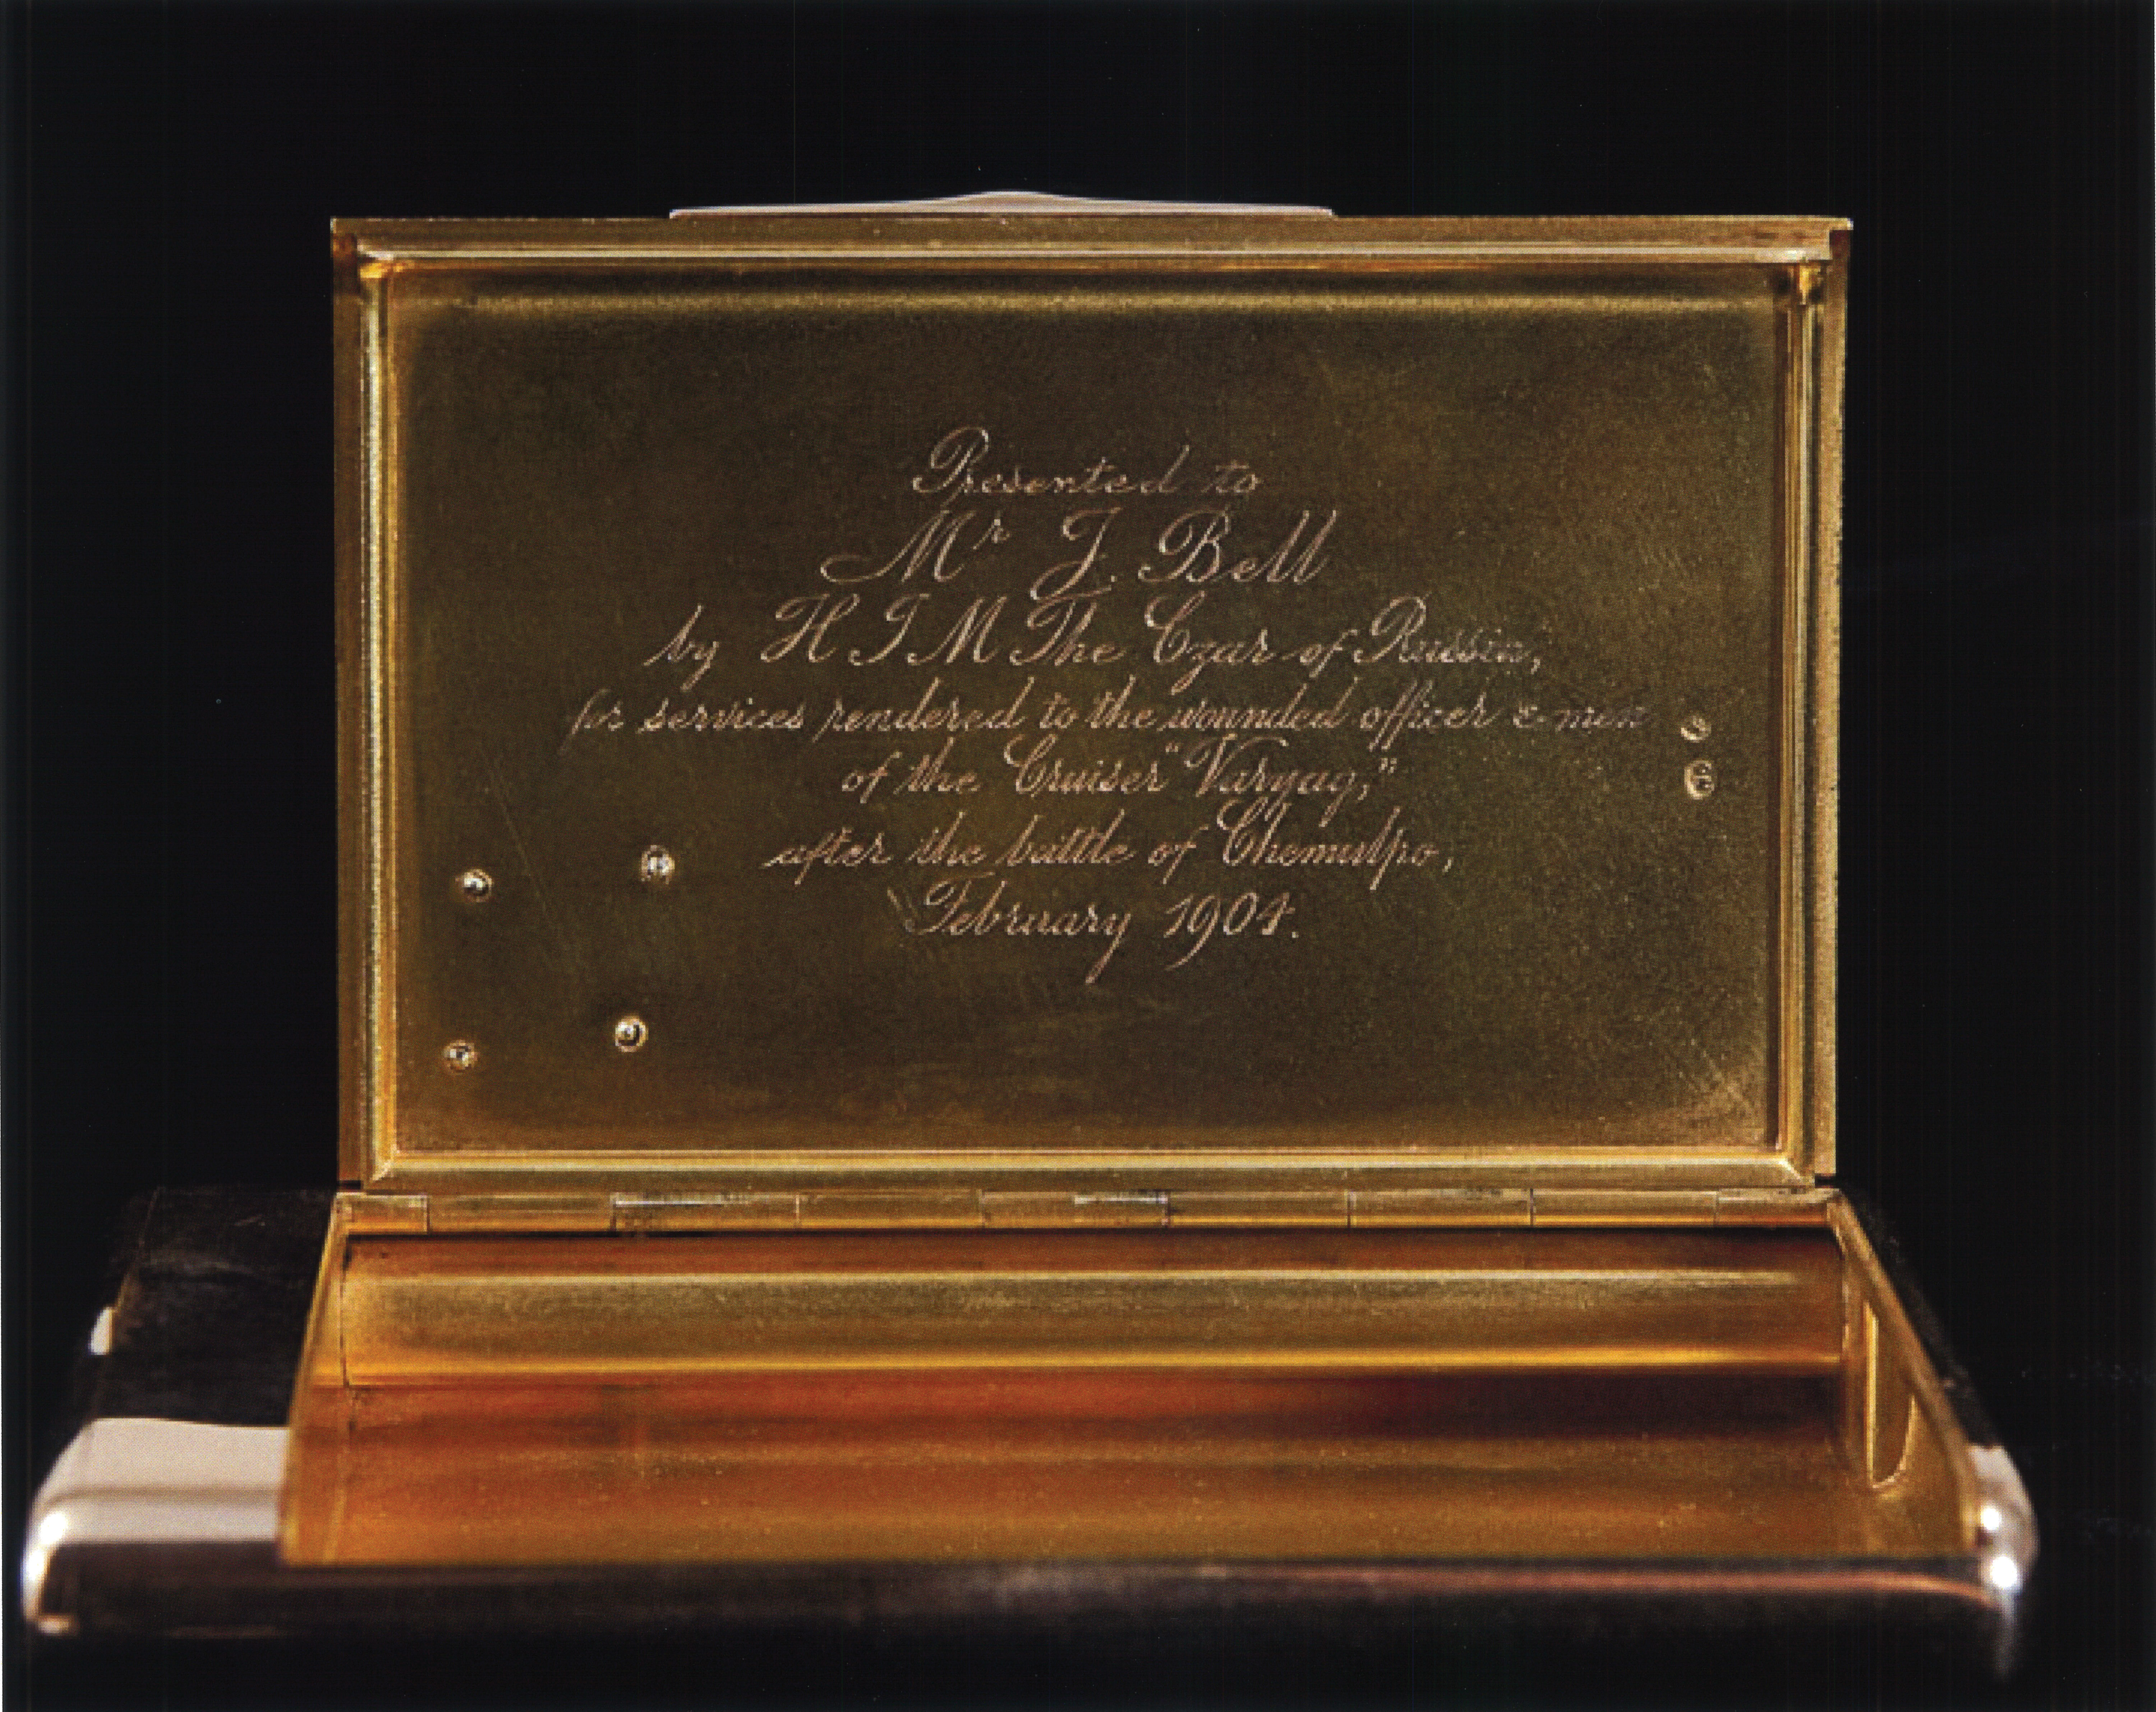 Presented to
Mr J. Bell
by H I M The Czar of Russia,
for services rendered to the wounded officer & men
of the Cruiser "Varyag,"
after the battle of Chemulpo,
February 1904.